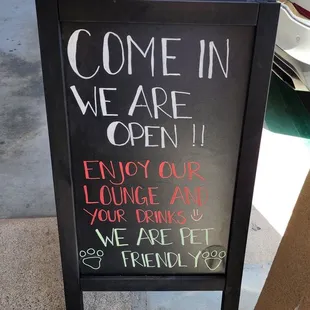 COME IN
WE ARE
OPEN !!
ENJOY OUR
LOUNGE AND
YOUR DRINKS
WE ARE PET
FRIENDLY